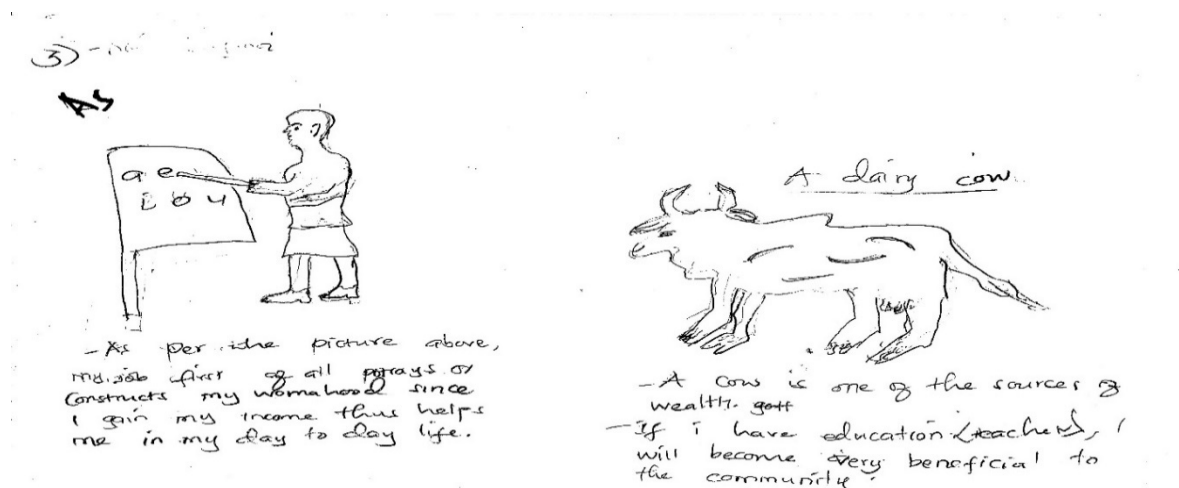 3)
As
a e
i o u
- As per the picture above,
my job first of all porays or
Constructs my womahood since
I gain my income thus helps
me in my day to day life.
A dairy cow
- A cow is one of the sources of
wealth.
- If i have education (teacher), I
will become very beneficial to
the community.